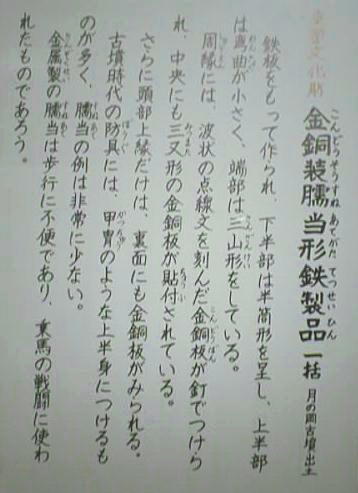 重要文化財
金銅装臑当形鉄製品 一括 月の岡古墳出土
鉄板をもって作られ、下半部は半筒形を呈し、上半部
は弯曲が小さく、端部は三山形をしている。
周縁には、波状の点線文を刻んだ金銅板が釘でつけら
れ、中央にも三又形の金銅板が貼付されている。
さらに頭部上縁だけは、裏面にも金銅板がみられる。
古墳時代の防具には、甲冑のような上半身につけるも
のが多く、臑当の例は非常に少ない。
金属製の臑当は歩行に不便であり、乗馬の戦闘に使わ
れたものであろう。